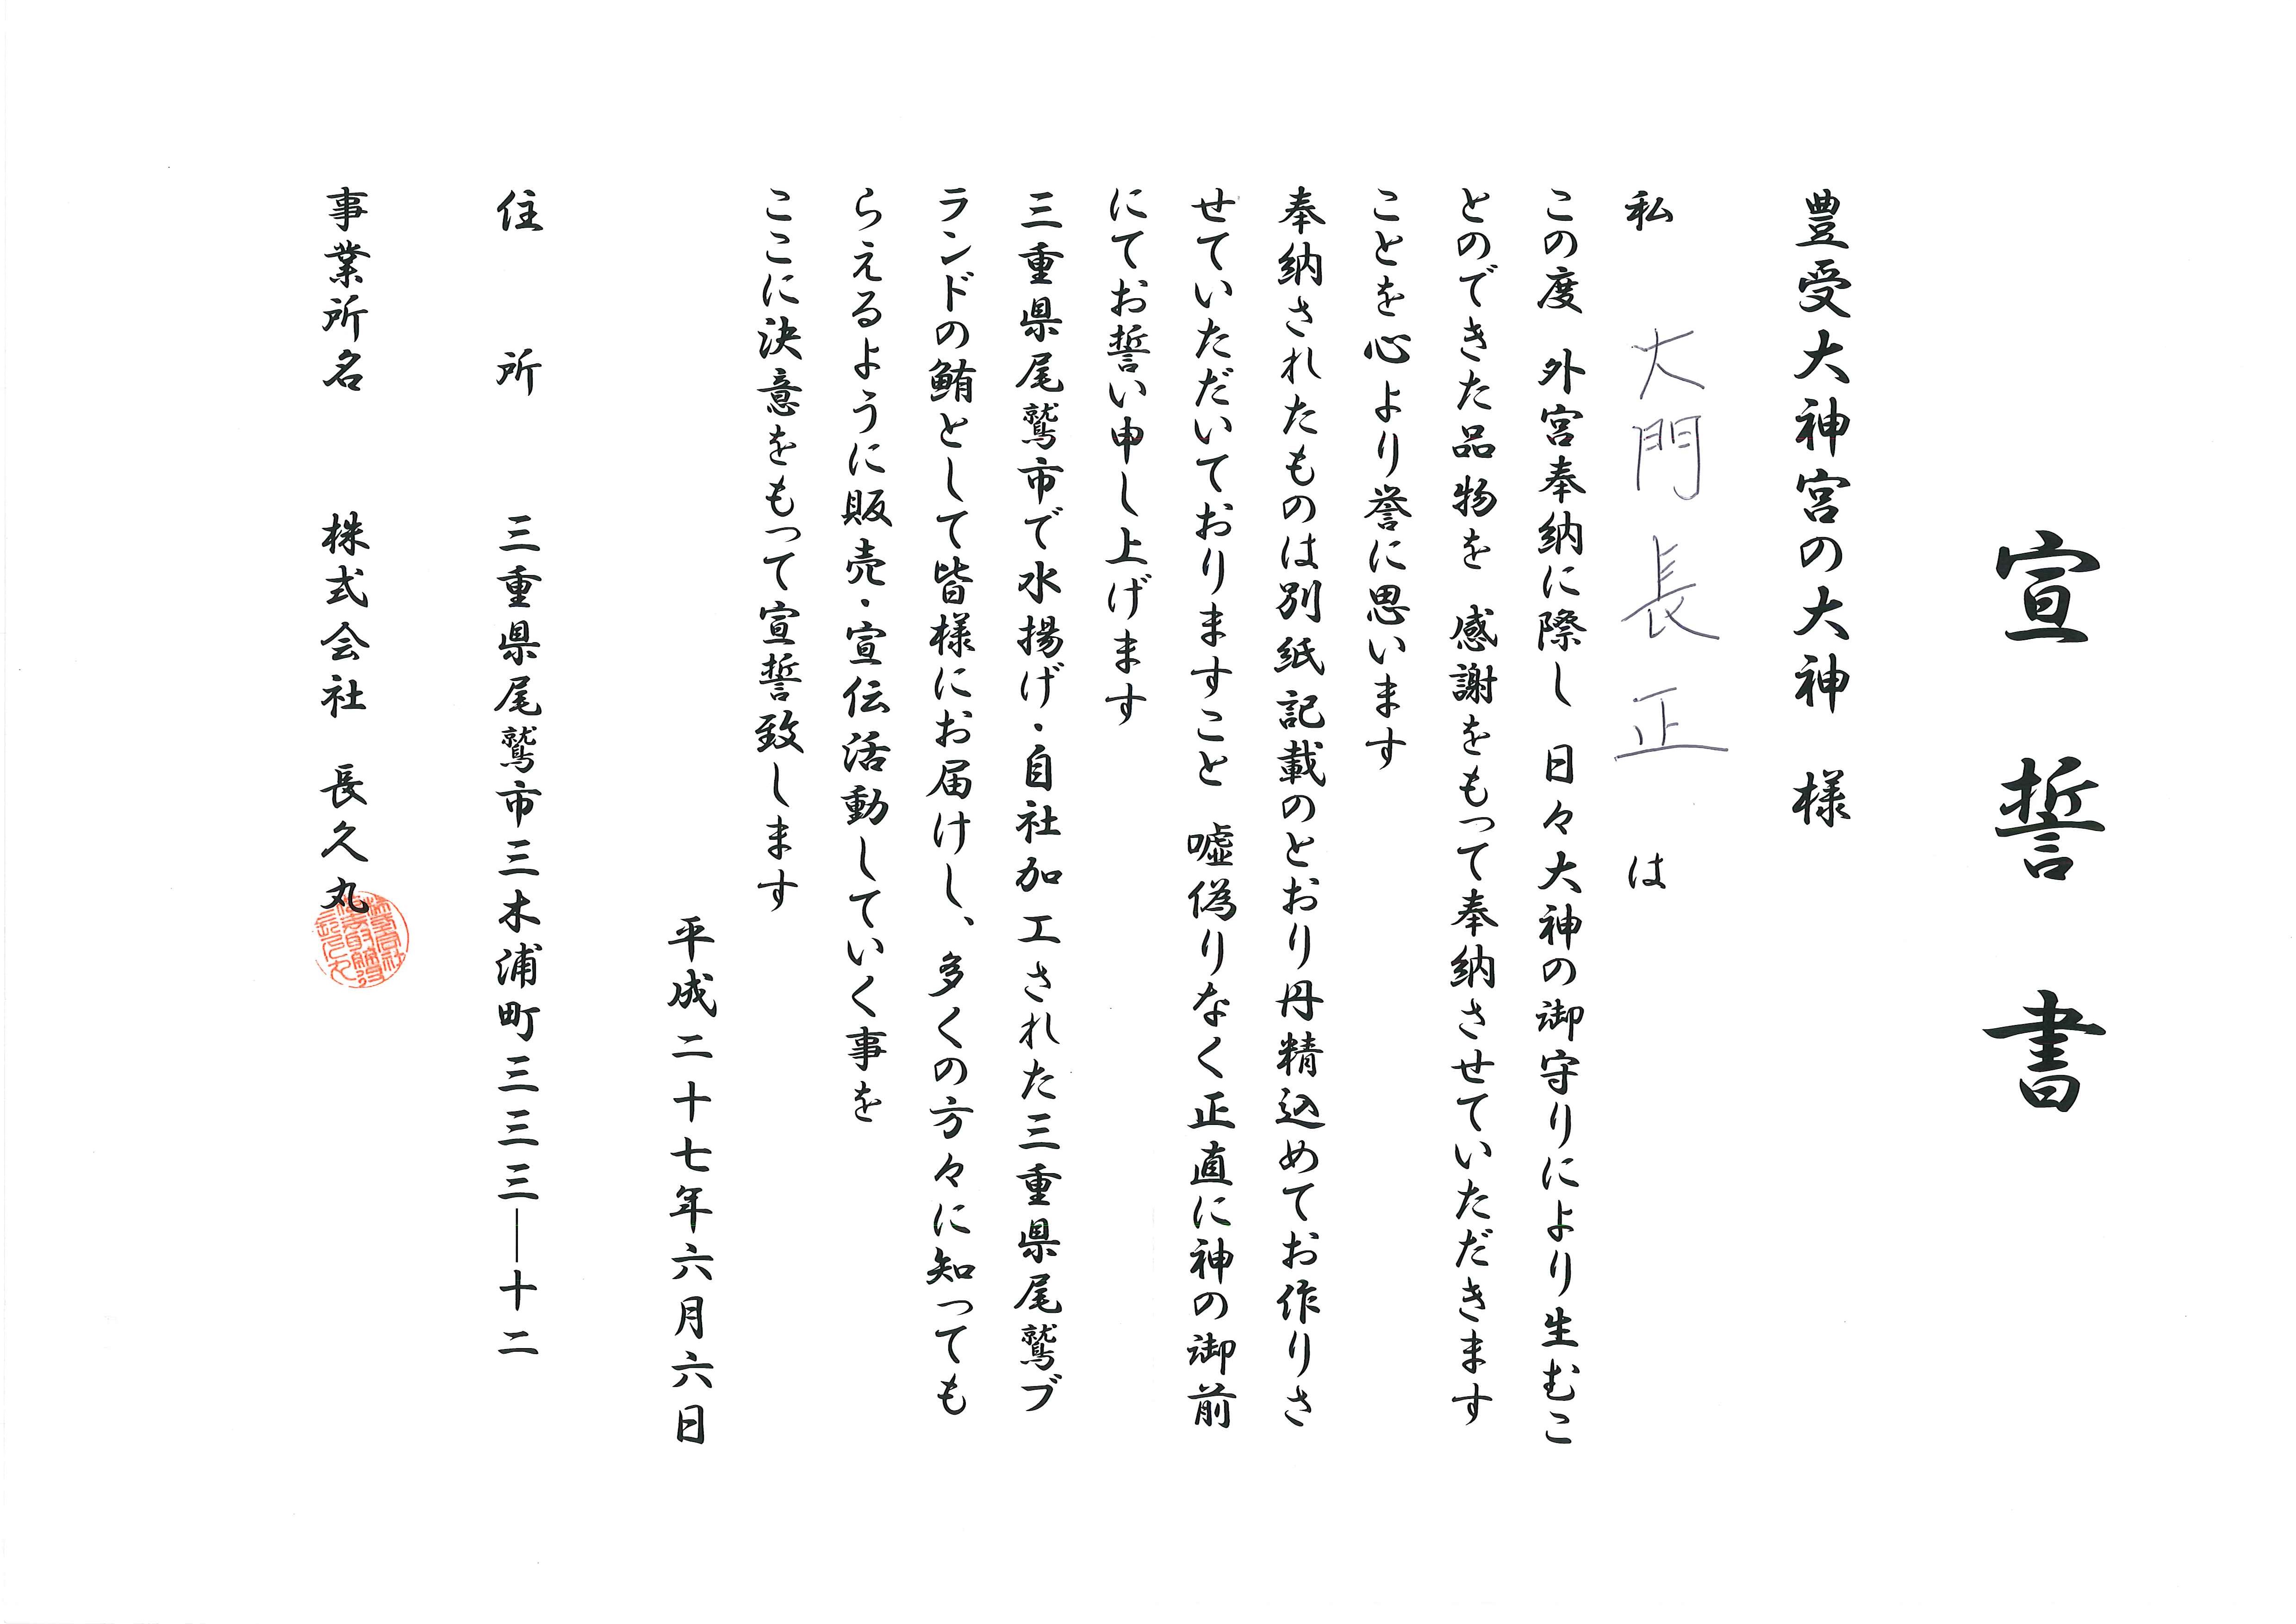 宣誓書
豊受大神宮の大神 様
私 大門長正 は
この度 外宮奉納に際し 日々大神の御守りにより生むこ
とのできた品物を 感謝をもって奉納させていただきます
ことを心より誉に思います
奉納されたものは別紙記載のとおり丹精込めてお作りさ
せていただいておりますこと 嘘偽りなく正直に神の御前
にてお誓い申し上げます
三重県尾鷲市で水揚げ・自社加工された三重県尾鷲ブ
ランドの鮪として皆様にお届けし、多くの方々に知っても
らえるように販売・宣伝活動していく事を
ここに決意をもって宣誓致します
平成二十七年六月六日
住所 三重県尾鷲市三木浦町三三三―十二
事業所名 株式会社 長久丸